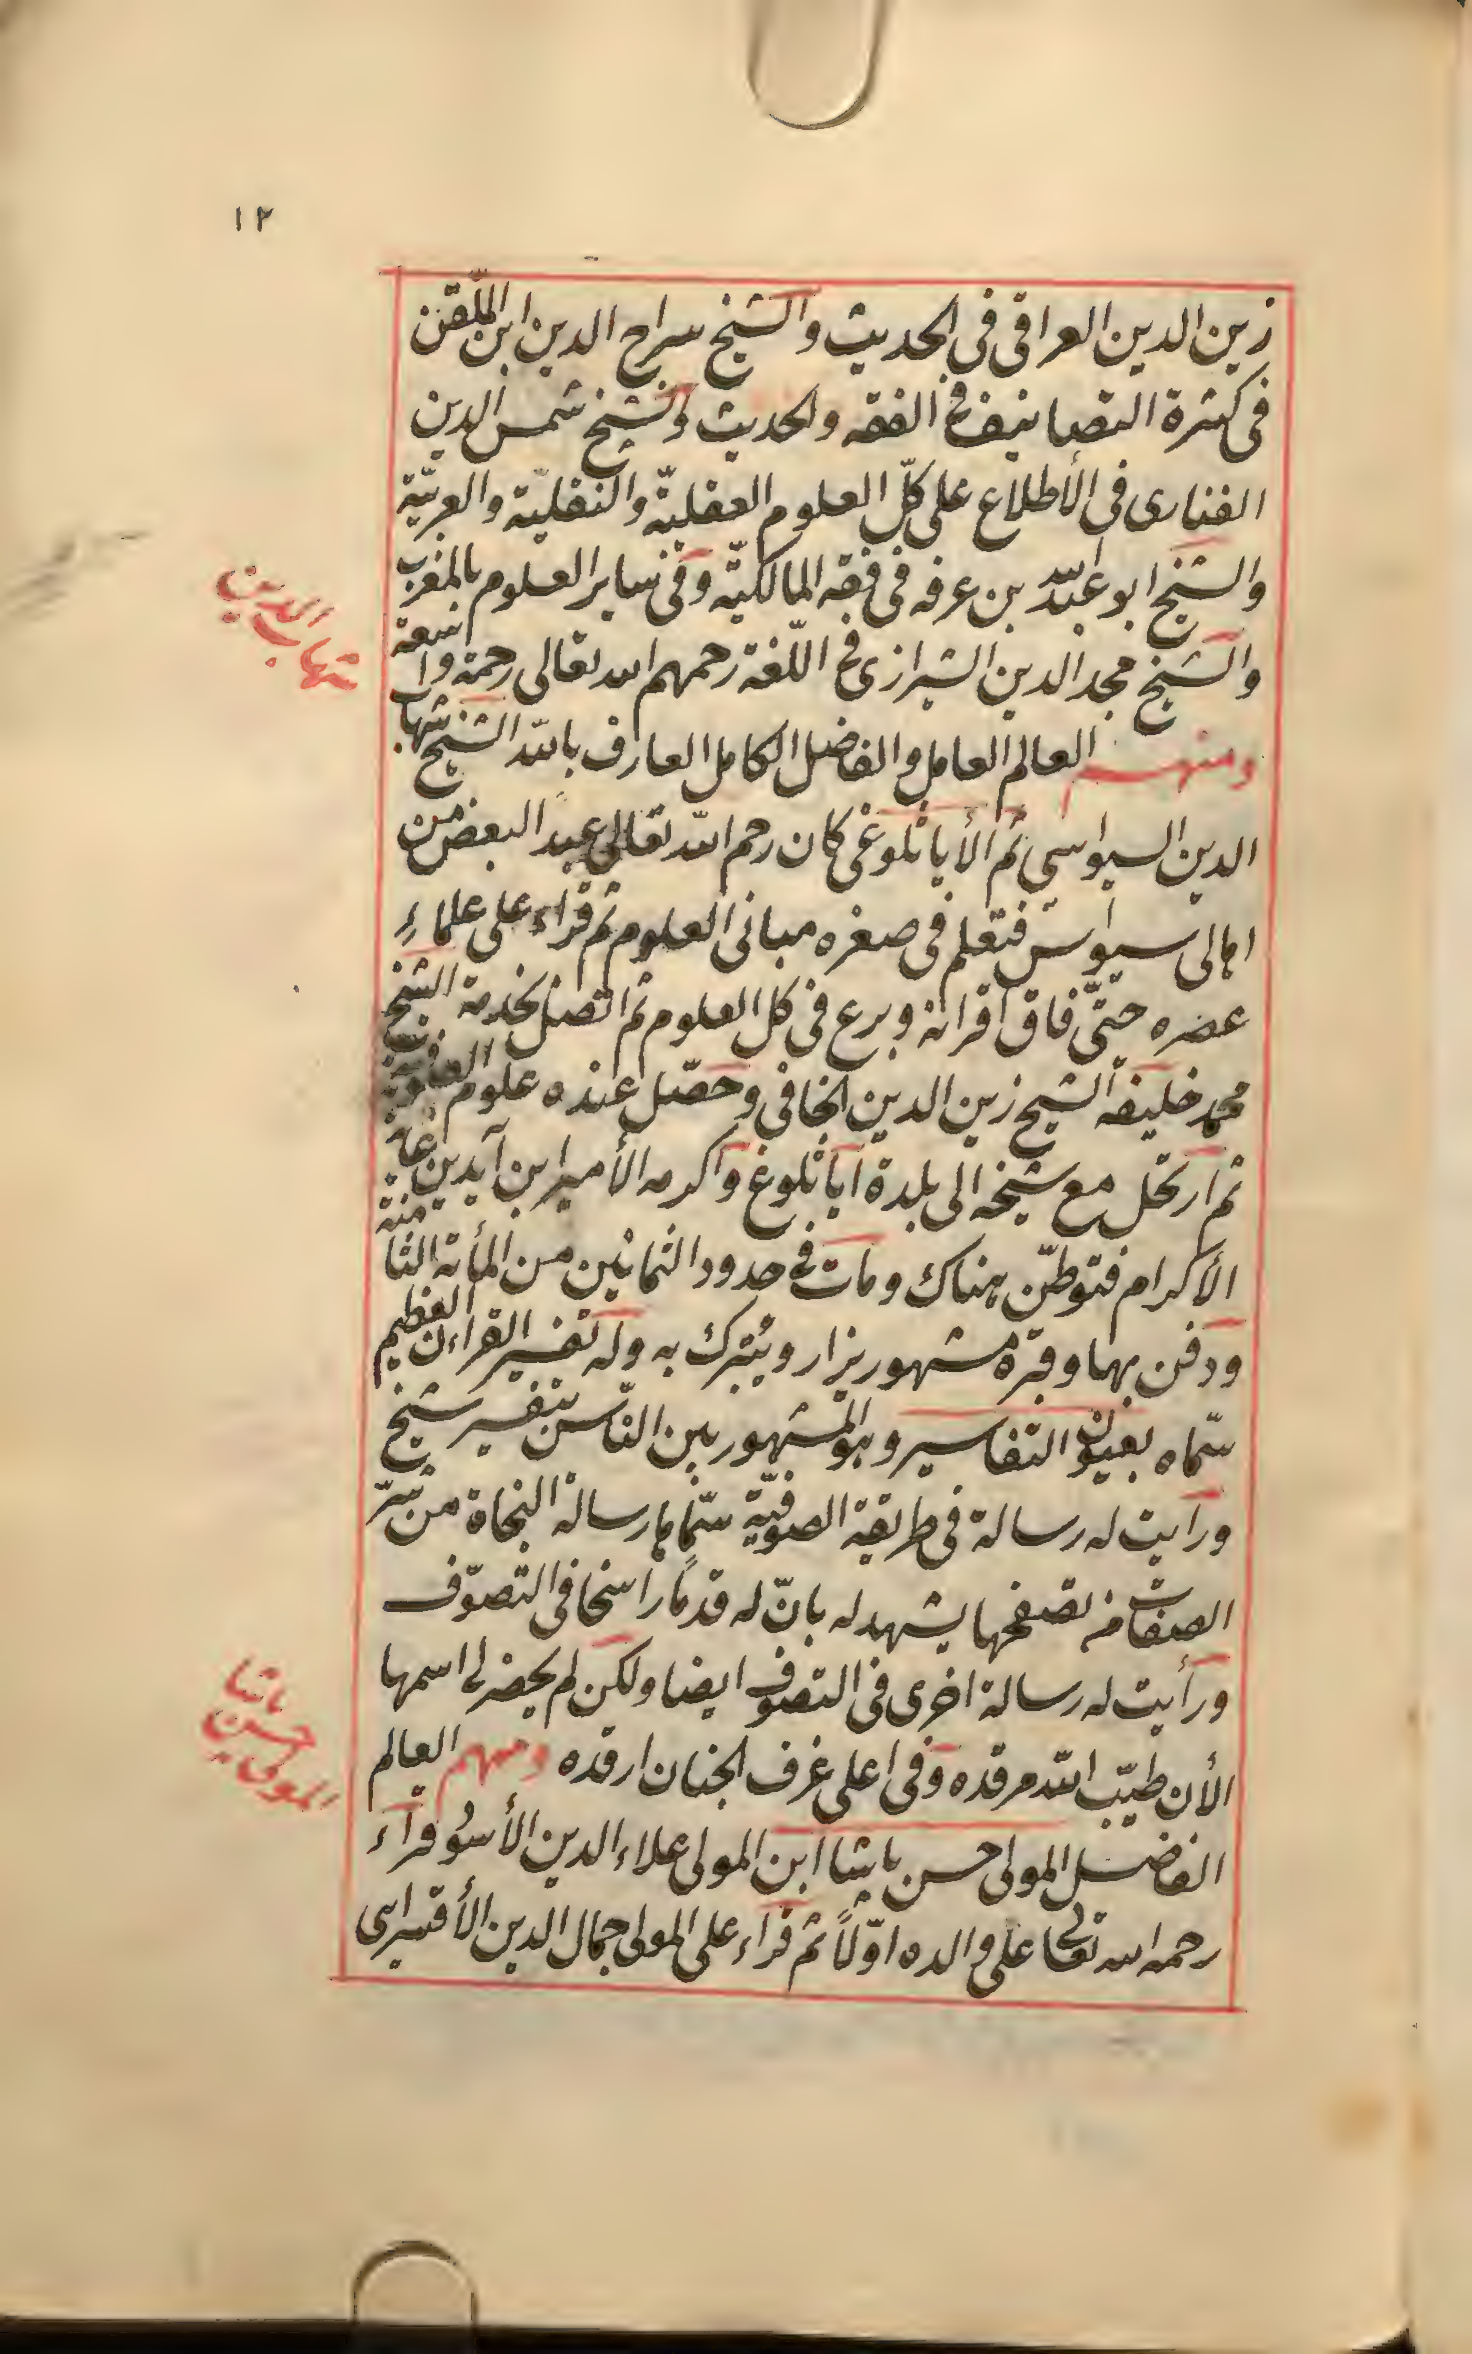 ١٢
زين الدين العراقى فى الحديث والشيخ سراج الدين ابن الملّقن
فى كثرة التصانيف فى الفقه والحديث والشيخ شمس الدين
الفنارى فى الأطلاع على كلّ العلوم العقليّة والنقليّة والعربيّة
والشيخ ابو عبد الله بن عرفه فى فقه المالكيّة وفى ساير العلوم بالمغرب
والشيخ مجد الدين الشيرازى فى اللّغة رحمهم الله تعالى رحمة واسعة
شهاب الدين
ومنهم العالم العامل والفاضل الكامل العارف بالله الشيخ شهاب
الدين السيواسي ثم الأياثلوغى كان رحم الله تعالى عبدًا لبعض من
اهالى سيواس فتعلم فى صغره مبانى العلوم ثم قراء على علماءِ
عصره حتّى فاق اقرانه وبرع فى كل العلوم ثم اتصل بخدمة الشيخ
محمد خليفه الشيخ زين الدين الخافى وحصّل عنده علوم الصوفية
ثم ارتحل مع شيخه الى بلدة اياثلوغ واكرمه الأمير ابن آيدين غاية
الأكرام فتوطّن هناك ومات فى حدود الثمانين من المأئة الثامنة
ودفن بهما وقبره مشهور يزار ويُتبرك به وله تفسير القراءن العظيم
سمّاه بعيون التفاسير وهو المشهور بين النّاس بتفسير شيخ
ورايت له رسالة فى طريقة الصوفيّة سمّاها رسالة النجاة من شرّ
الصفات من تصفحها يشهد له بانّ له قدمًا راسخا فى التصوّف
ورأيت له رسالة اخرى فى التصوف ايضا ولكن لم يحضر لى اسمها
الأن طيّب الله مرقده وفى اعلى غرف الجنان ارقده ومنهم العالم
المولى حسن باشا
الفاضل المولى حسن باشا ابن المولى علاء الدين الأسُود قرآء
رحمه الله تعالى على والده اوّلاً ثم قراء على المولى جمال الدين الأقسرايى